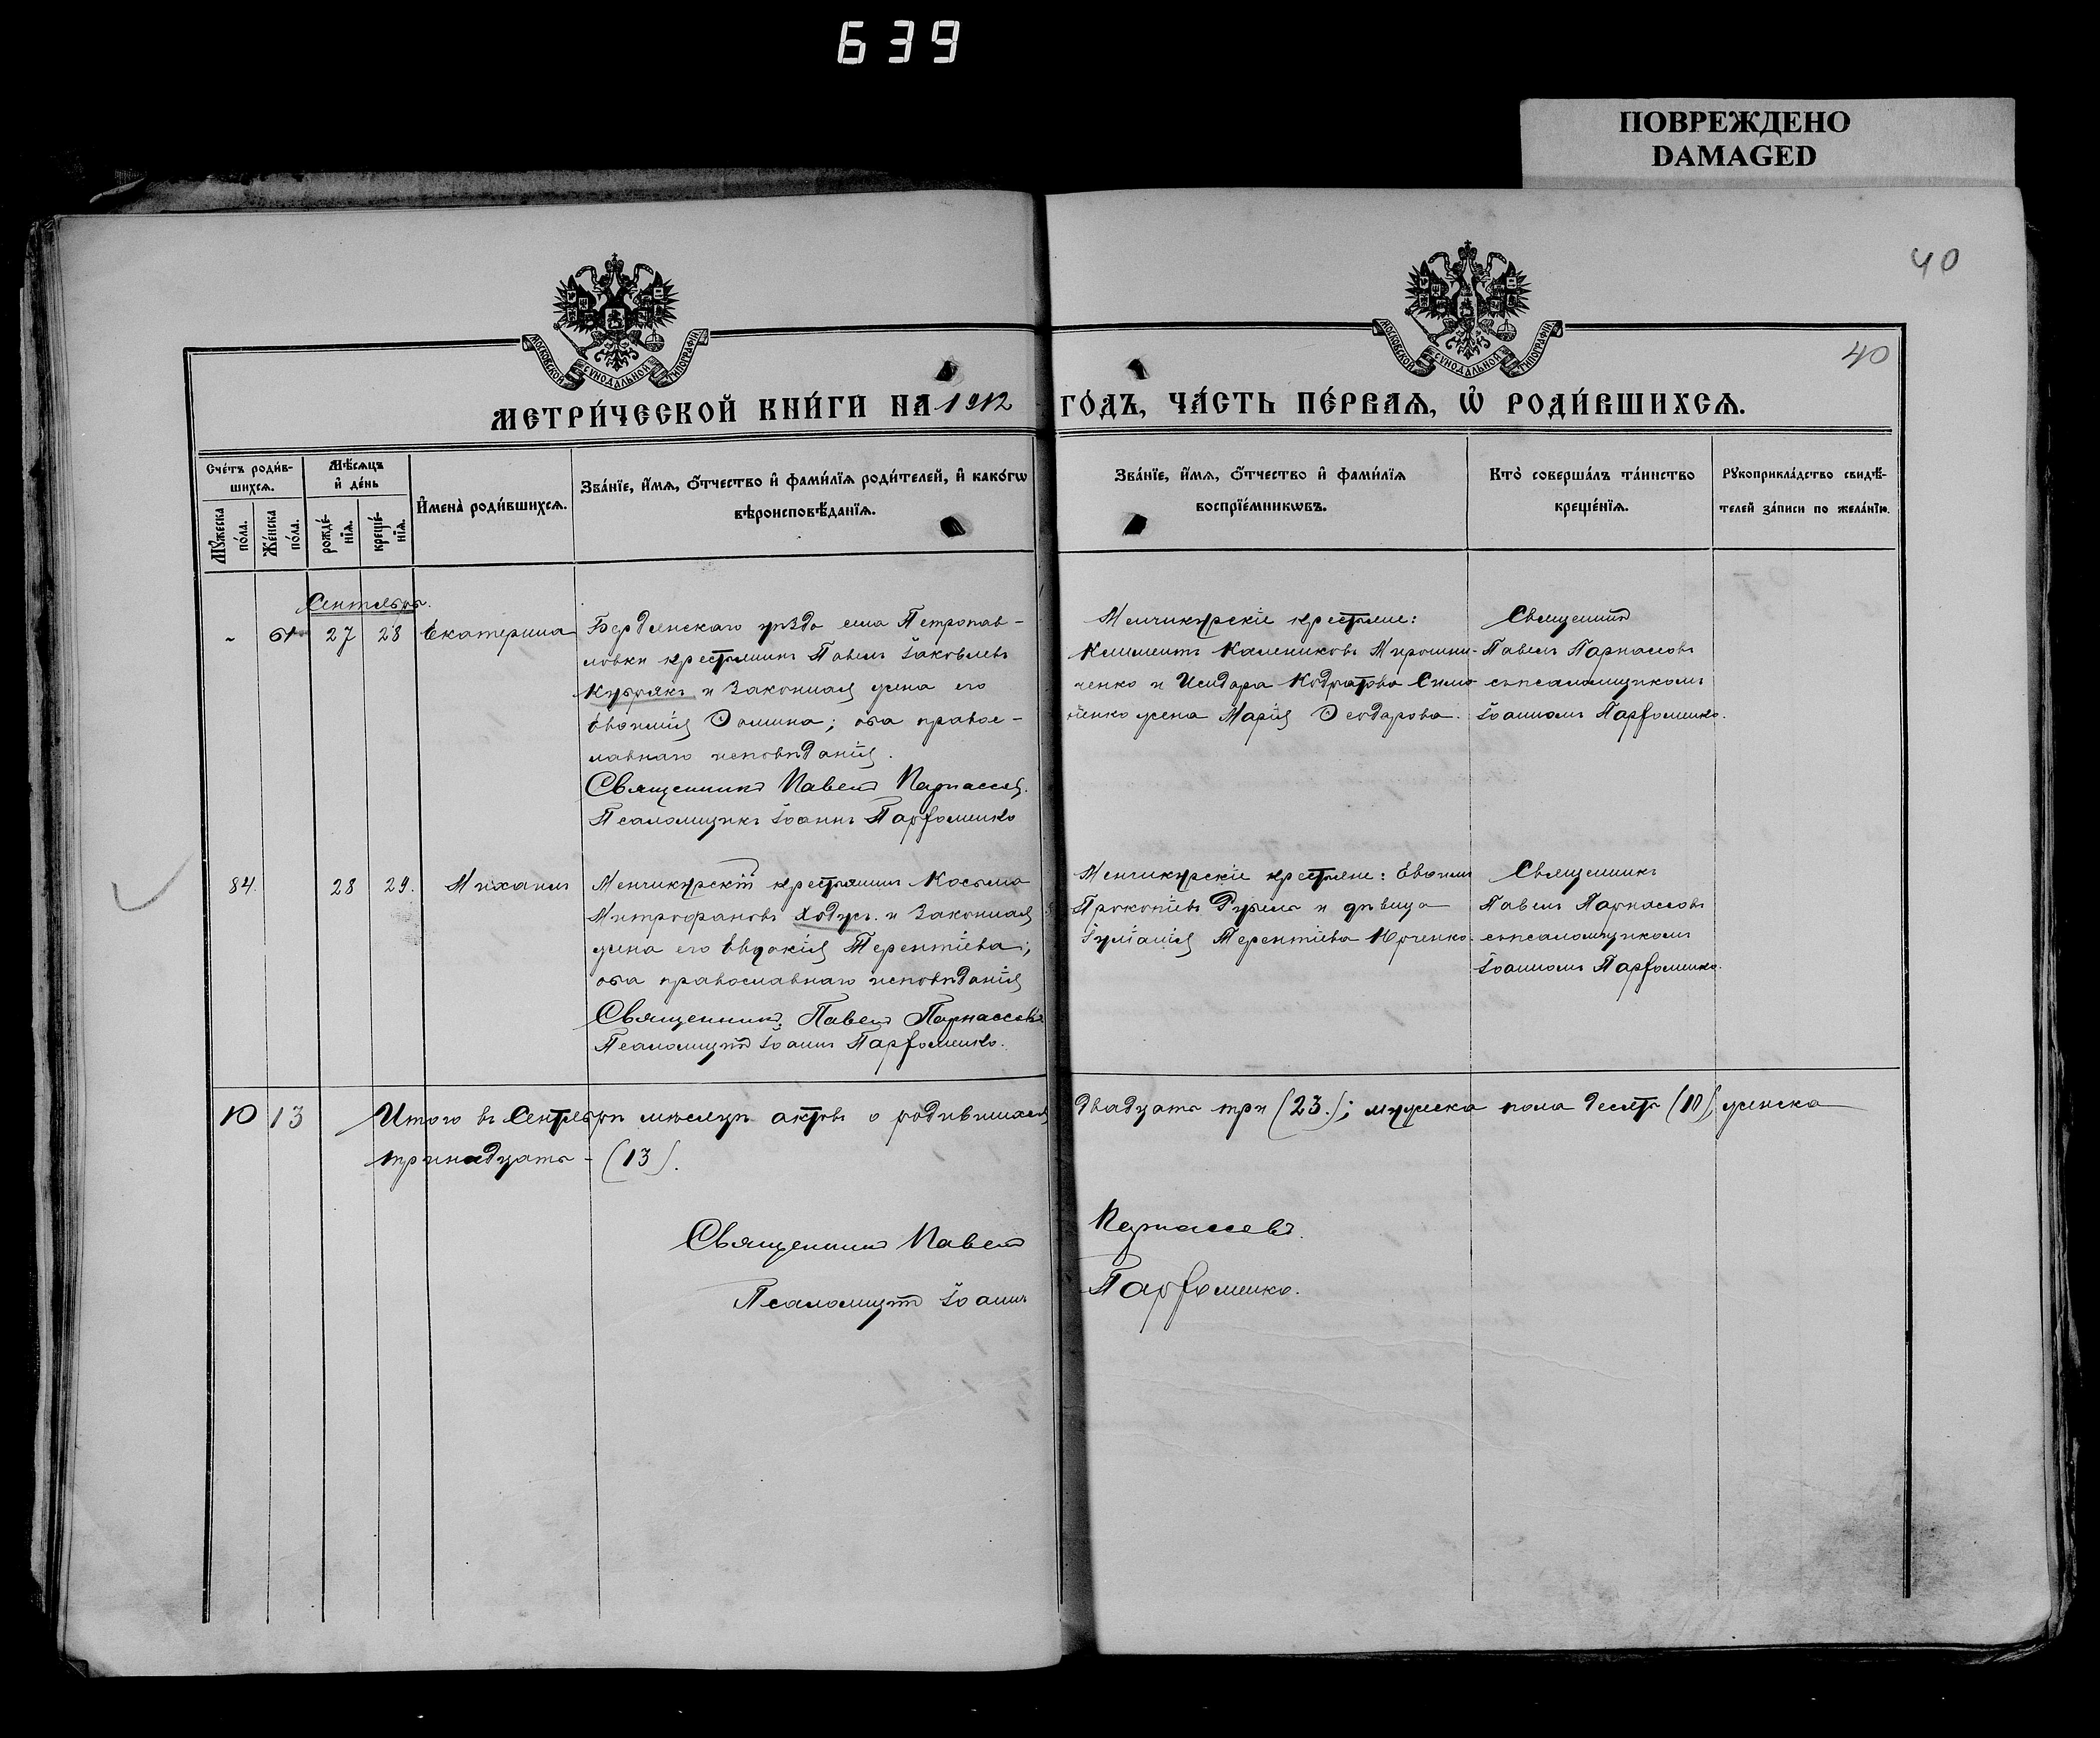 639
ПОВРЕЖДЕНО
DAMAGED
40
МОСКОВСКОЙ СѴНОДАЛЬНОЙ ТИПОГРАФІИ
МОСКОВСКОЙ СѴНОДАЛЬНОЙ ТИПОГРАФІИ
40
МЕТРИ́ЧЕСКОЙ КНИ́ГИ НА 1912 ГО́ДЪ, ЧА́СТЬ ПЕ́РВАѦ, Ѡ҆ РОДИ́ВШИХСѦ.
Сче́тъ роди́в-
шихсѧ.
Мѣ́сѧцъ
и҆ де́нь
Мꙋ́жеска
по́ла.
Же́нска
по́ла.
рожде́-
нїѧ.
креще́-
нїѧ.
И҆мена̀ роди́вшихсѧ.
Зва́нїе, и҆́мѧ, ѻ҆́тчество и҆ фами́лїѧ роди́телей, и҆ како́гѡ
вѣроисповѣ́данїѧ.
Зва́нїе, и҆́мѧ, ѻ҆́тчество и҆ фами́лїѧ
воспрїе́мникѡвъ.
Кто̀ соверша́лъ та́инство
креще́нїѧ.
Рꙋкоприкла́дство свидѣ́-
телей за́писи по жела́нїю.
Сентябрь.
27 28 Екатерина
Бердянскаго уѣзда села Петропав-
ловки крестьянинъ Павелъ Іаковлевъ
и законная жена его
Евѳимія Ѳомина; оба правос-
лавнаго исповѣданія.
Священникъ Павелъ Парнассовъ.
Псаломщикъ Іоаннъ Парфоменко
Менчикурскіе крестьяне:
Климентъ Калениковъ Мирошни-
ченко и Исидора Кодратова Симо
ненко жена Марія Ѳеодорова.
Священникъ
Павелъ Парнассовъ
съ псаломщикомъ
Іоанномъ Парфоменко.
84. 28 29. Михаилъ
Менчикурскій крестьянинъ Косьма
Митрофановъ Ходусъ и законная
жена его Евдокія Терентіева;
оба православнаго исповѣданія
Священникъ Павелъ Парнассовъ
Псаломщикъ Іоаннъ Парфоменко.
Менчикурскіе крестьяне: Евѳимій
Прокопіевъ и дѣвица
Іуліанія Терентіева Юрченко.
Священникъ
Павелъ Парнассовъ
съ псаломщикомъ
Іоанномъ Парфоменко.
10 13 Итого въ Сентябрѣ мѣсяцѣ актовъ о родившихся двадцать три (23.); мужеска пола десять (10), женска
тринадцать - (13).
Священникъ Павелъ Парнассовъ.
Псаломщикъ Іоаннъ Парфоменко.